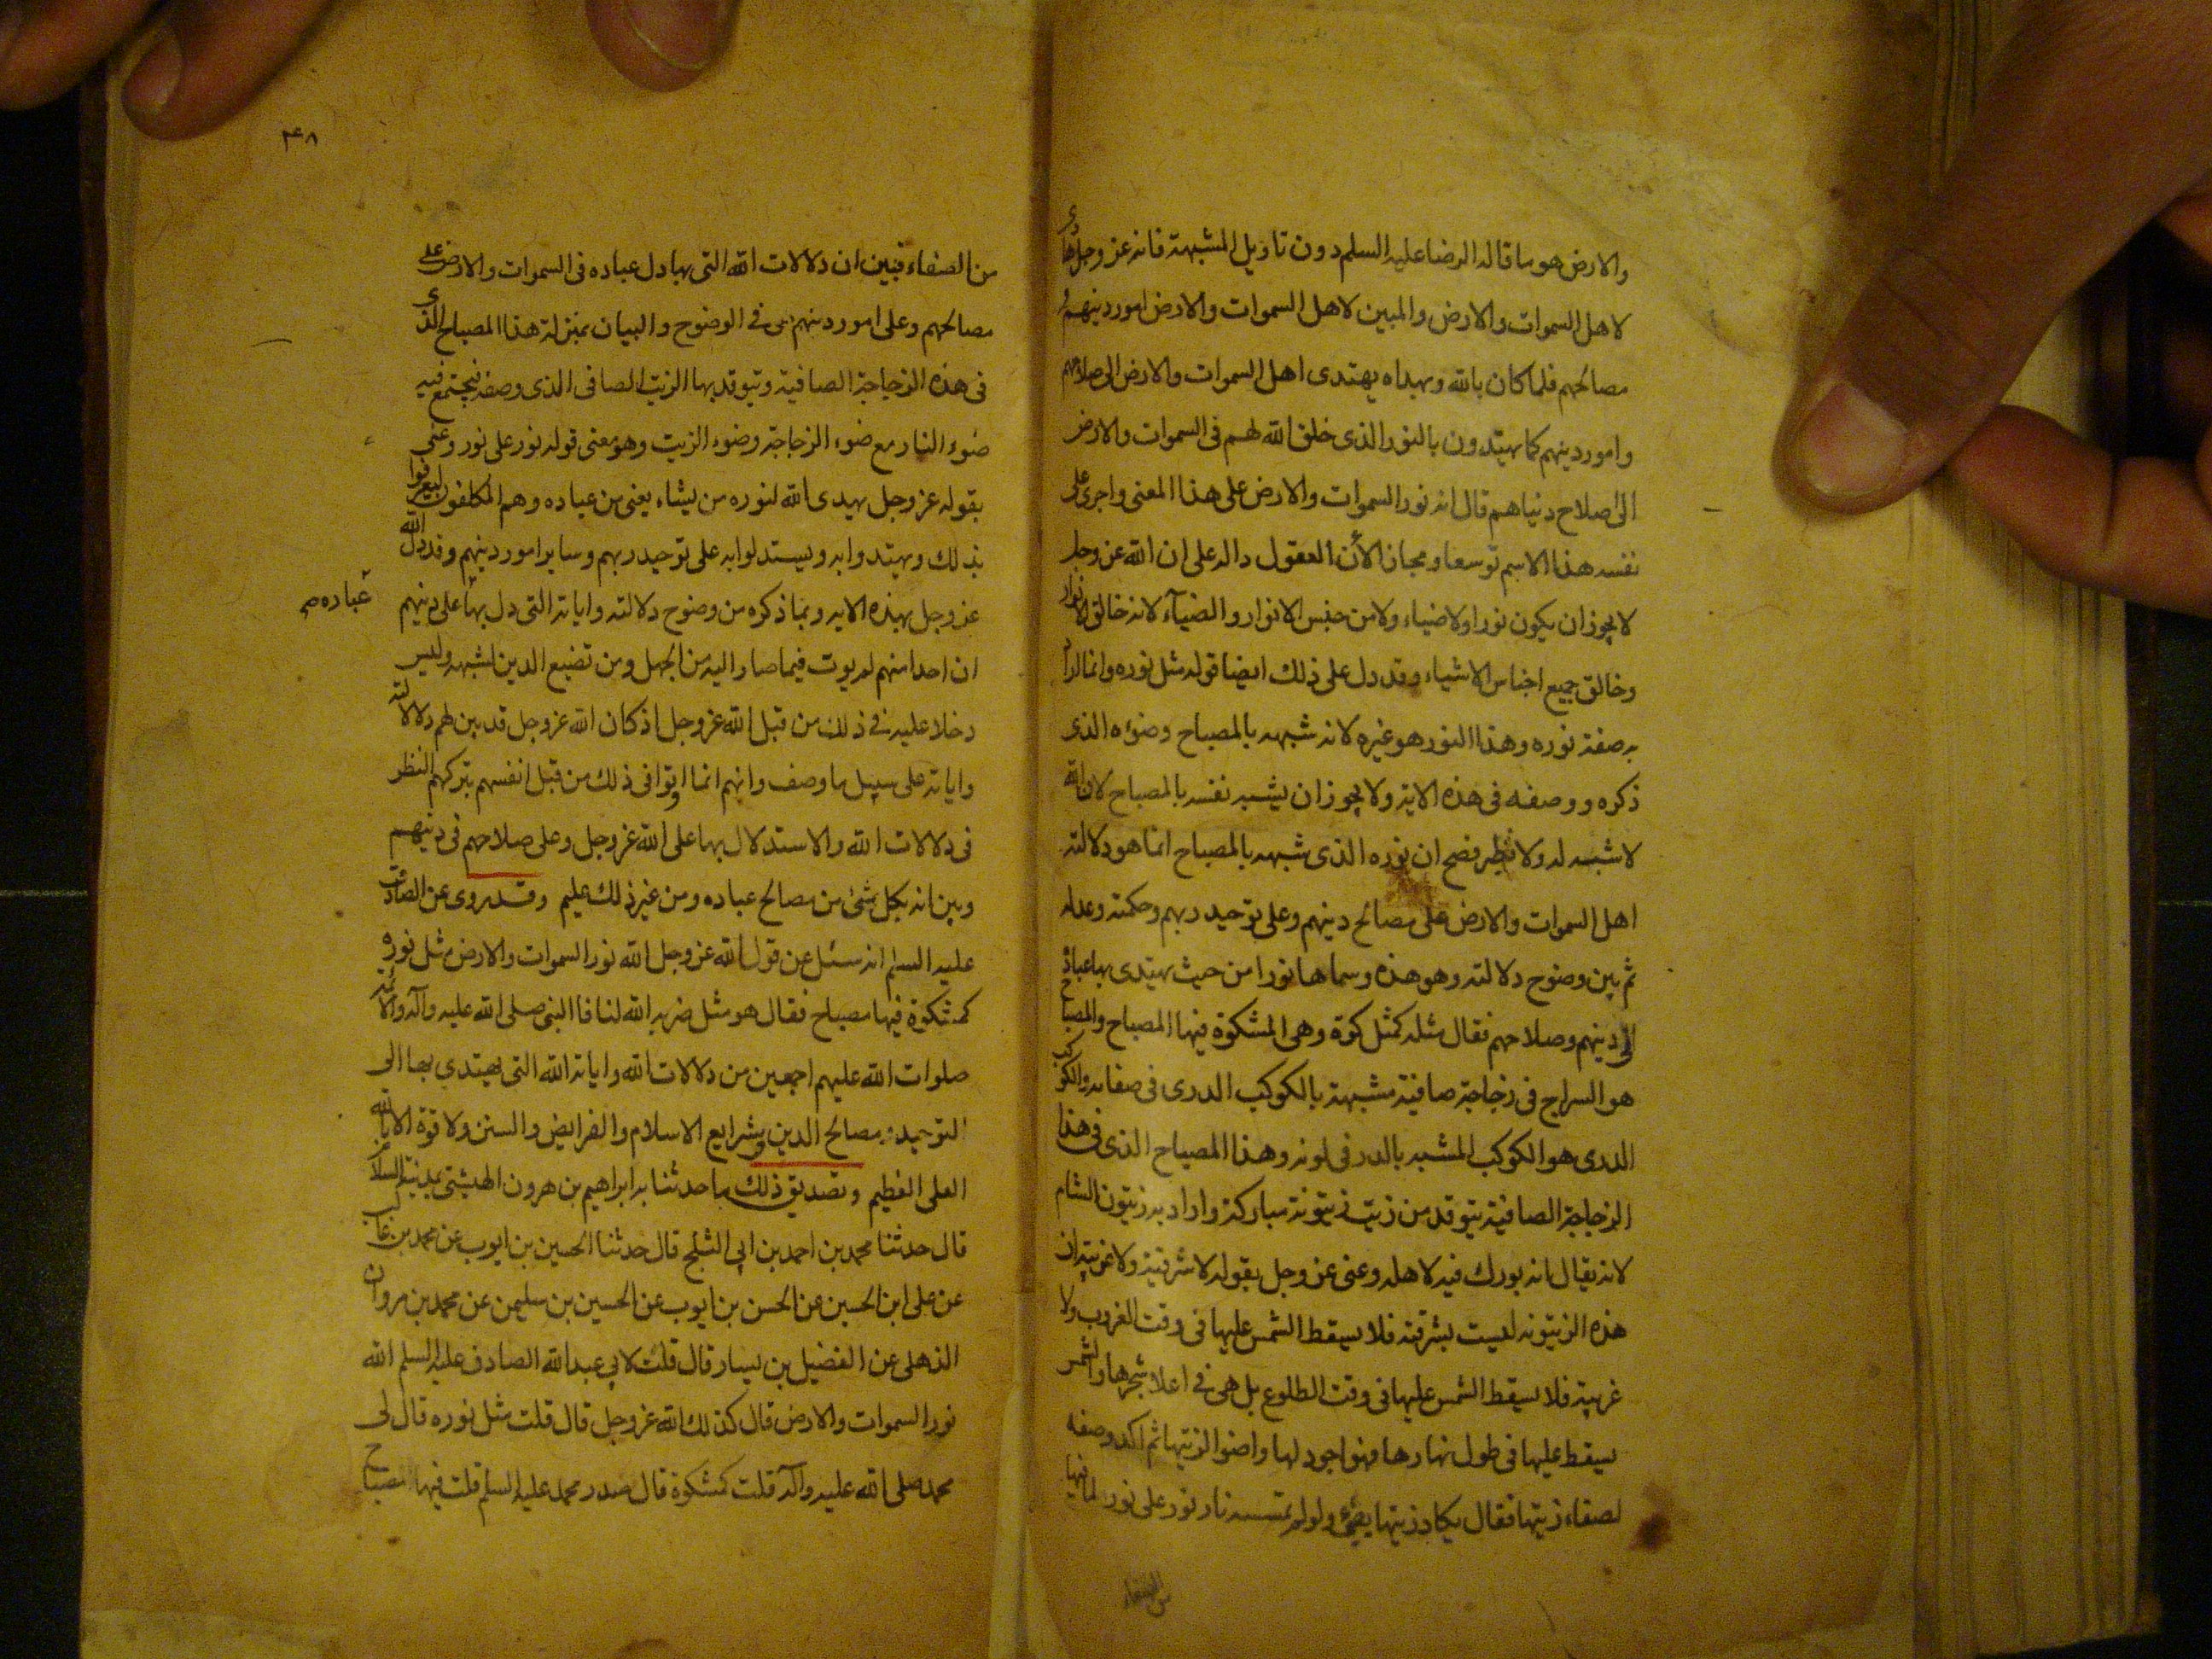 والارض هو ما قاله الرضا عليه السلم دون تاويل المشبهة فانه عز وجل هادى
لاهل السموات والارض والمبين لاهل السموات والارض امور دينهم و
مصالحهم فلما كان بالله وبهداه يهتدى اهل السموات والارض الى صلاحهم
وامور دينهم كما يهتدون بالنور الذى خلق الله لهم فى السموات والارض
الى صلاح دنياهم قال انه نور السموات والارض على هذا المعنى واجرى على
نفسه هذا الاسم توسعا ومجازا لأن العقول داله على ان الله عز وجل
لا يجوز ان يكون نورا ولا ضياء ولا من جنس الانوار والضيآء لانه خالق الانوار
وخالق جميع اجناس الاشياء وقد دل على ذلك ايضا قوله مثل نوره وانما اراد
به صفة نوره وهذا النور هو غيره لانه شبهه بالمصباح وضوئه الذى
ذكره ووصفه فى هذه الاية ولا يجوز ان يشبه نفسه بالمصباح لان الله
لا شبه له ولا نظير فصح ان نوره الذى شبهه بالمصباح انما هو دلالته
اهل السموات والارض على مصالح دينهم وعلى توحيد ربهم وحكمته وعدله
ثم بين وضوح دلالته وهو هذه وسماها نورا من حيث يهتدى بها عباده
الى دينهم وصلاحهم فقال مثله كمثل كوة وهى المشكوة فيها المصباح والمصباح
هو السراج فى زجاجة صافية مشبهة بالكوكب الدرى فى صفائه والكوكب
الدرى هو الكوكب المشبه بالدر فى لونه وهذا المصباح الذى فى هذا
الزجاجة الصافية يتوقد من زيت زيتونة مباركة واراد به زيتون الشام
لانه يقال انه بورك فيه لاهله وعنى عز وجل بقوله لا شرقية ولا غربية ان
هذه الزيتونه ليست بشرقية فلا يسقط الشمس عليها فى وقت الغروب ولا
غربية فلا يسقط الشمس عليها فى وقت الطلوع بل هى فى اعلا شجرها والشمس
يسقط عليها فى طول نهارها فهو اجود لها واضوا لزيتها ثم اكد وصفه
لصفاء زيتها فقال يكاد زيتها يضئ ولو لم تمسسه نار نور على نور لما فيها
من الصفاء
۴۸
من الصفاء فبين ان دلالات الله التى بها دل عباده فى السموات والارض على
مصالحهم وعلى امور دينهم هى فى الوضوح والبيان بمنزلة هذا المصباح الذى
فى هذه الزجاجة الصافية ويتوقد بها الزيت الصافى الذى وصفه فيجتمع فيه
ضوء النار مع ضوء الزجاجة وضوء الزيت وهو معنى قوله نور على نور وعنى
بقوله عز وجل يهدى الله لنوره من يشاء يعنى من عباده وهم المكلفون ليعرفوا
بذلك ويهتدوا به ويستدلوا به على توحيد ربهم وساير امور دينهم وقد دل الله
عز وجل بهذه الايه وبما ذكره من وضوح دلالته واياته التى دل بها على دينهم
عباده صح
ان احدا منهم لم يوت فيما صار اليه من الجهل ومن تضييع الدين لشبهه ولبس
دخلا عليه فى ذلك من قبل الله عز وجل اذ كان الله عز وجل قد بين لهم دلالاته
واياته على سبيل ما وصف وانهم انما اوتوا فى ذلك من قبل انفسهم بتركهم النظر
فى دلالات الله والاستدلال بها على الله عز وجل وعلى صلاحهم فى دينهم
وبين انه بكل شئ من مصالح عباده ومن غير ذلك عليم وقد روى عن الصادق
عليه السلم انه سئل عن قول الله عز وجل الله نور السموات والارض مثل نوره
كمشكوة فيها مصباح فقال هو مثل ضربه الله لنا فالنبى صلى الله عليه وآله والائمة
صلوات الله عليهم اجمعين من دلالات الله واياته الله التى يهتدى بها الى
التوحيد ومصالح الدين وشرايع الاسلام والفرايض والسنن ولا قوة الا بالله
العلى العظيم وتصديق ذلك ما حدثنا به ابراهيم بن هرون الهيثتى بمدينة السلام
قال حدثنا محمد بن احمد بن ابى الثلج قال حدثنا الحسين بن ايوب عن محمد بن غالب
عن على ابن الحسين عن الحسن بن ايوب عن الحسين بن سليمن عن محمد بن مروان
الذهلى عن الفضيل بن يسار قال قلت لابى عبد الله الصادق عليه السلم الله
نور السموات والارض قال كذلك الله عز وجل قال قلت مثل نوره قال لى
محمد صلى الله عليه وآله قلت كمشكوة قال صدر محمد عليه السلم قلت فيها مصباح